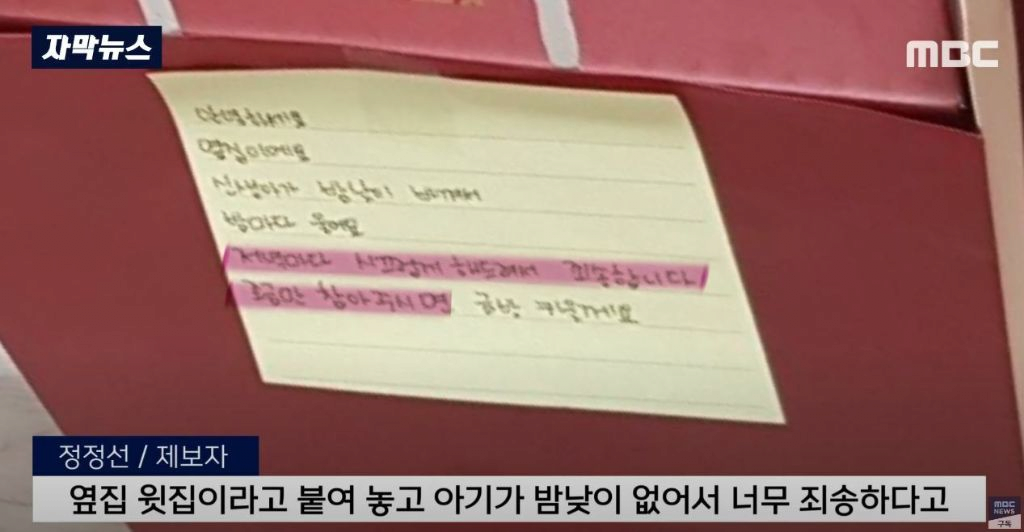 자막뉴스
MBC
안녕하세요
옆집이에요
신생아가 밤낮이 바껴서
밤마다 울어요
저녁마다 시끄럽게 해드려서 죄송합니다
조금만 참아주시면 금방 키울게요
정정선 / 제보자
옆집 윗집이라고 붙여 놓고 아기가 밤낮이 없어서 너무 죄송하다고
MBC
NEWS
구독